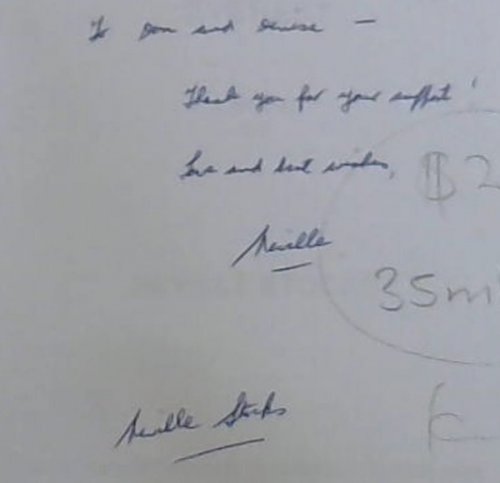 To Don and Denise —
Thank you for your support!
Love and best wishes,
$2
Neville
35m
Neville Stocks